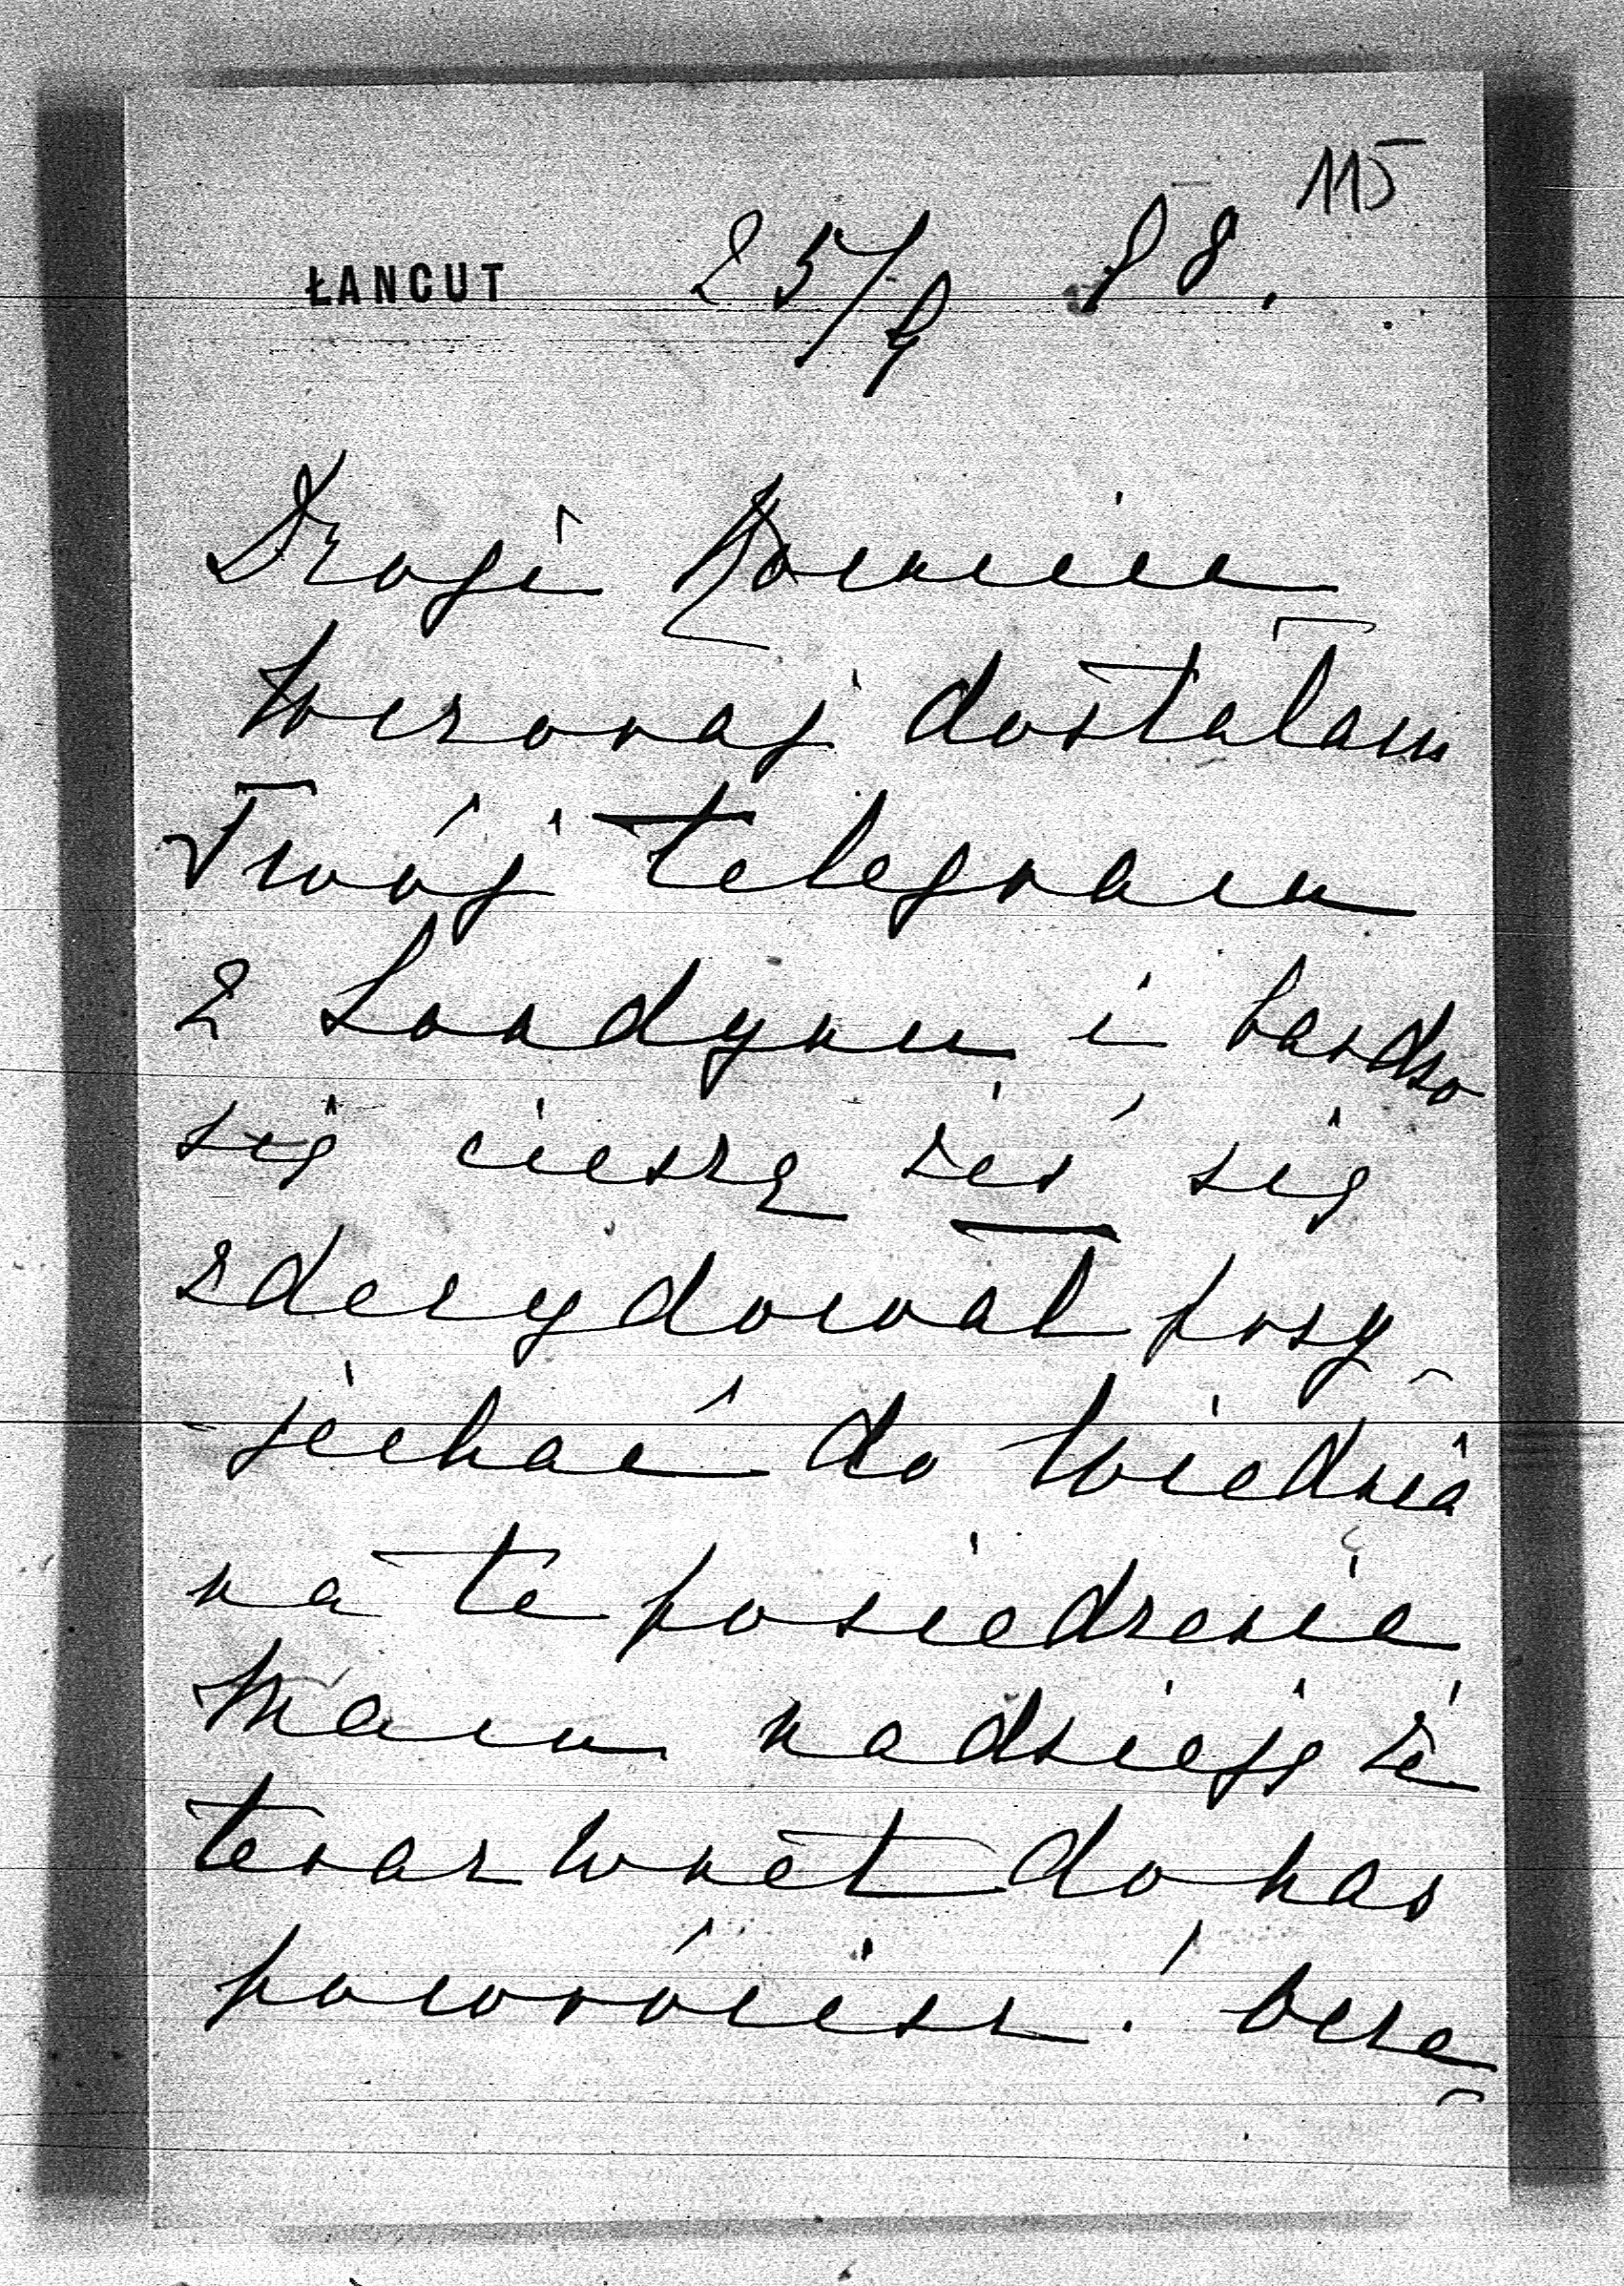 115
ŁANCUT 25/8 88.
Drogi Romciu
Wczoraj dostałam
Twój telegram
z Londynu i bardzo
się cieszę żeś się
zdecydował przy
-jechać do Wiednia
na te posiedzenie
Mam nadzieję że
teraz wnet do nas
powrócisz!